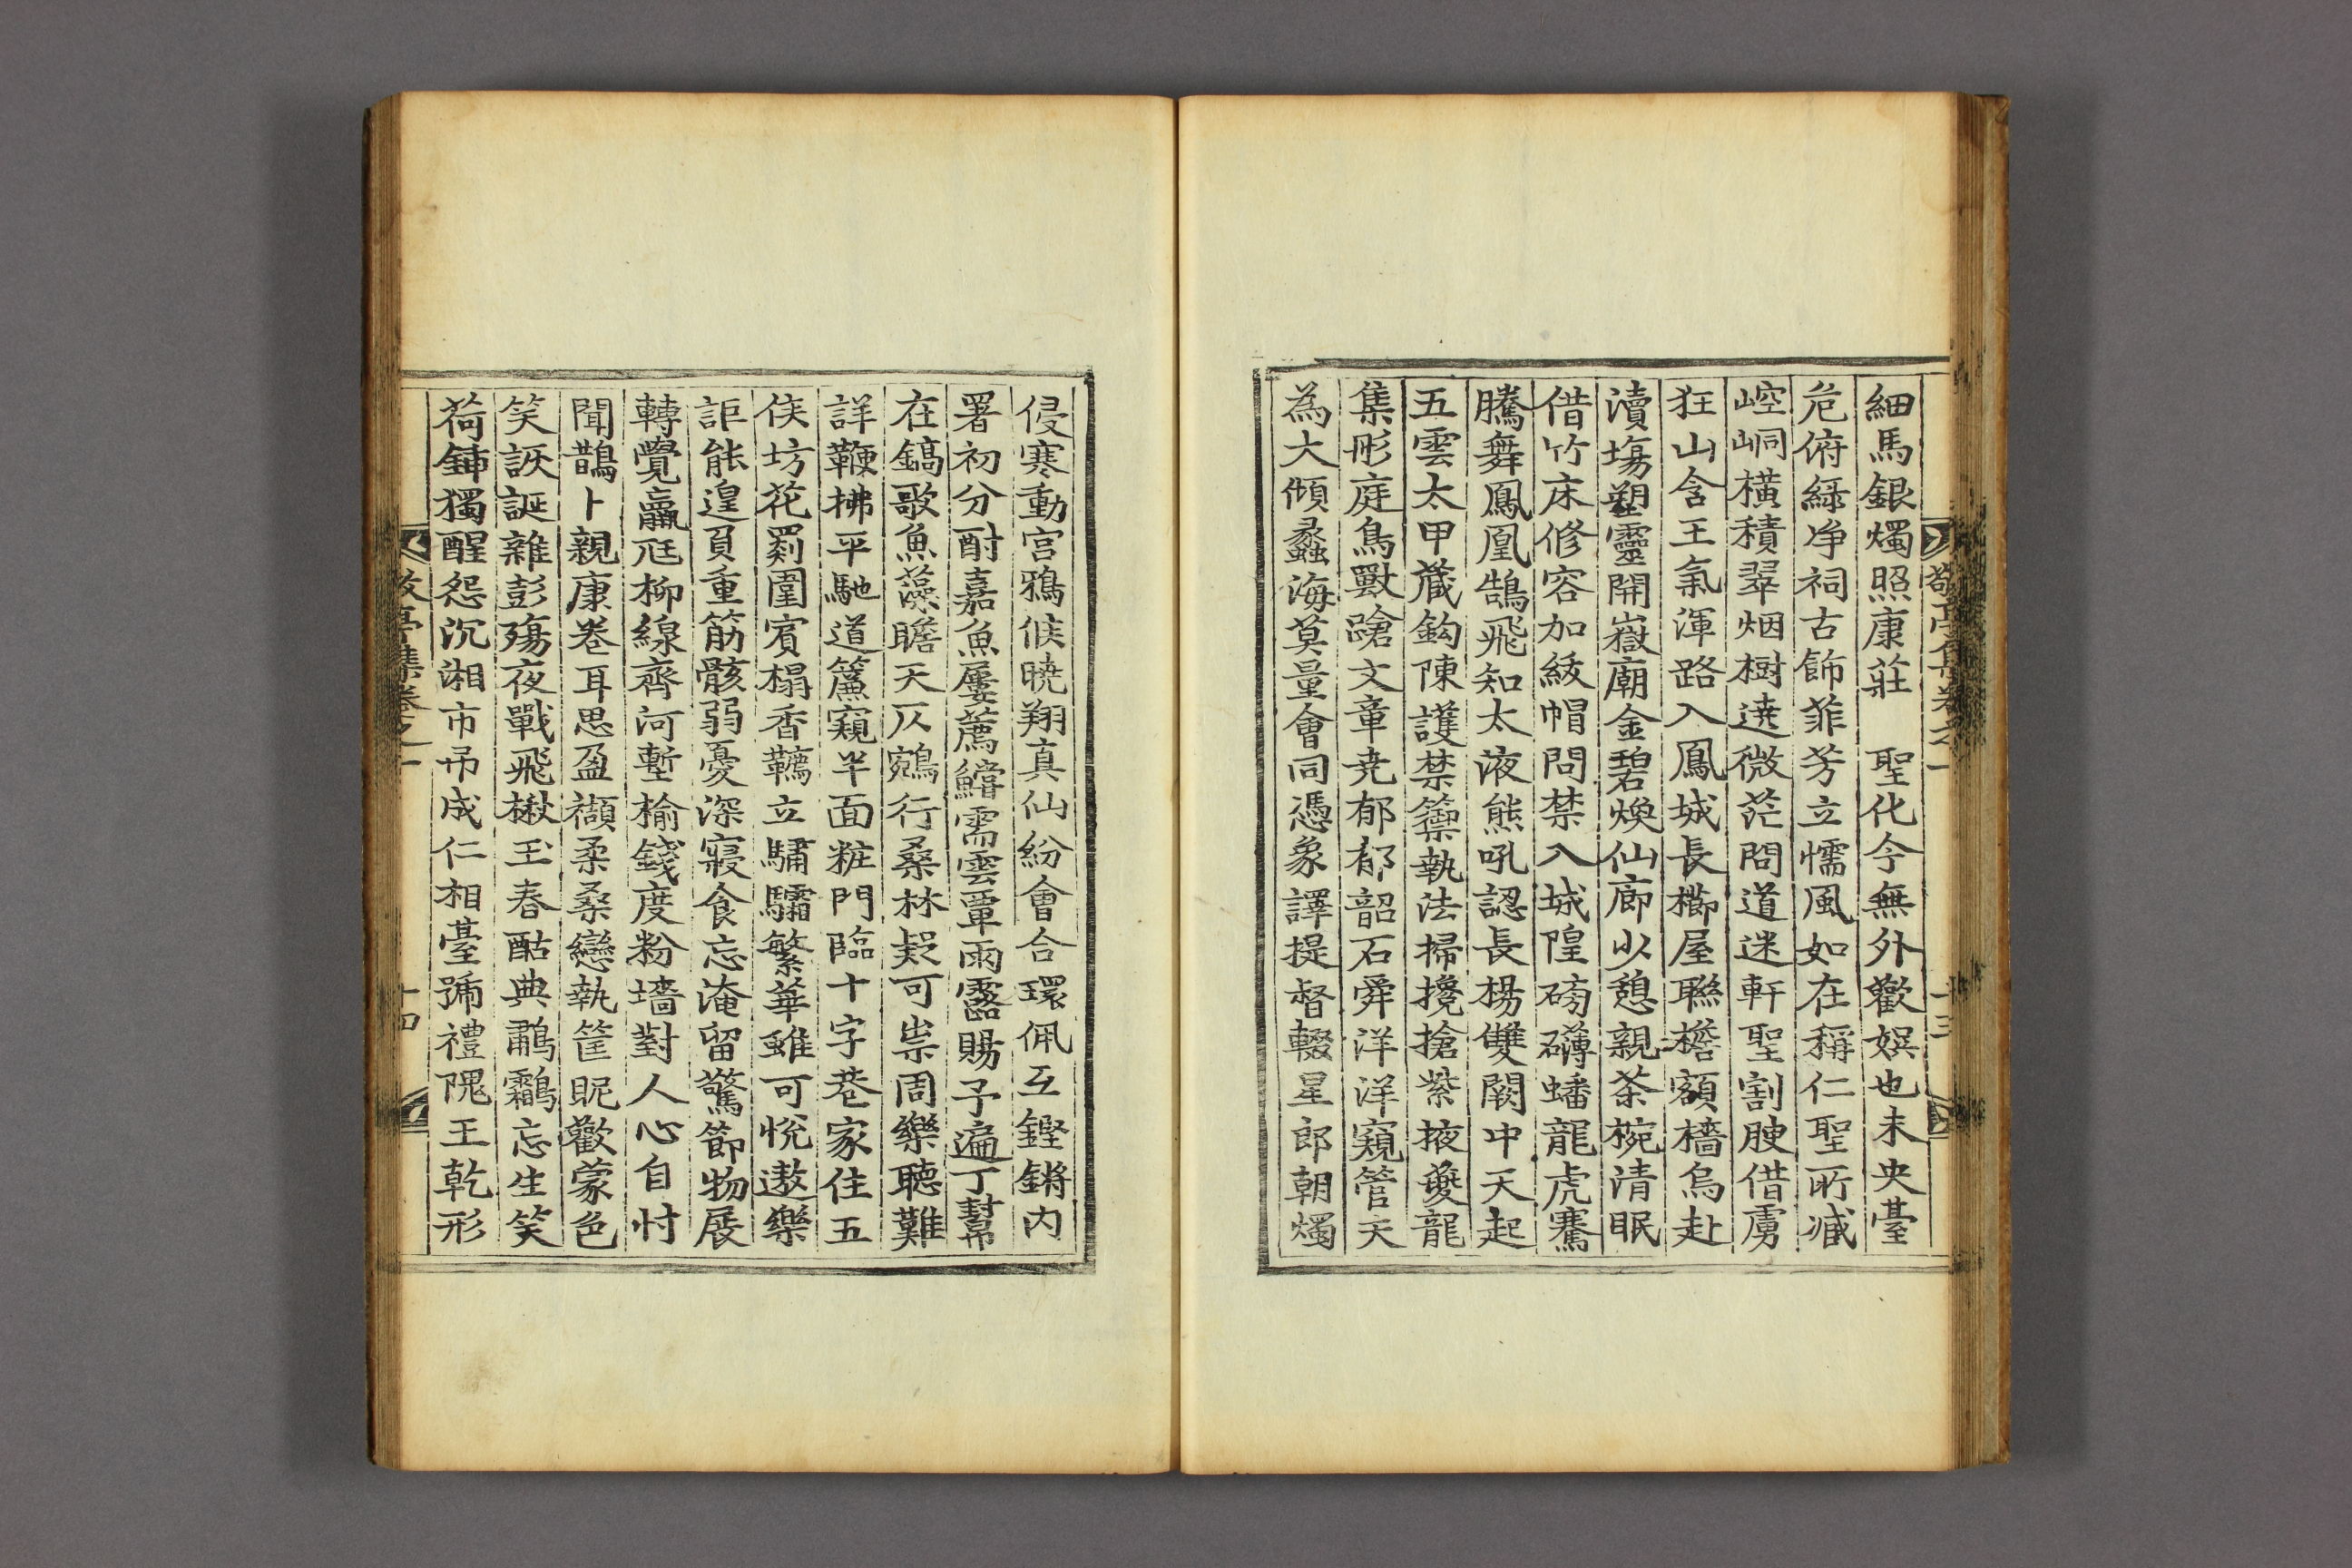 細馬銀燭照康莊　聖化今無外歡娯也未央臺
危俯綠净祠古飾菲芳立懦風如在稱仁聖所臧
崆峒橫積翠烟樹遶微茫問道迷軒聖割腴借虜
狂山含王氣渾路入鳳城長櫛屋聯檐額檣烏赴
瀆塲塑靈開嶽廟金碧煥仙廊少憩親茶椀清眠
借竹床修容加緌帽問禁入城隍磅礴蟠龍虎騫
騰舞鳳凰鵠飛知太液熊吼認長楊雙闕中天起
五雲太甲蔵鈎陳護禁籞執法掃攙搶紫掖夔龍
集彤庭鳥獸蹌文章尭郁郁韶石舜洋洋窺管天
為大傾蠡海莫量會同憑象譯提督輟星郎朝燭
敬亭集卷之一　十三
侵寒動宮鴉候曉翔真仙紛會合環佩互鏗鏘内
署初分酎嘉魚屢薦鱨需雲覃雨露賜予遍丁幇
在鎬歌魚藻瞻天仄鵷行桑林疑可祟周樂聽難
詳鞭拂平馳道簾窺半面粧門臨十字巷家住五
侯坊花罽圍賓榻香韉立驌驦繁華雖可悅遨樂
詎能遑負重筋骸弱憂深寢食忘淹留驚節物展
轉覺羸尫柳線齊河塹榆錢度粉墻對人心自忖
聞鵲卜親康卷耳思盈襭柔桑戀執筐昵歡蒙色
笑詼誕雜彭殤夜戰飛楸玉春酤典鷫鸘忘生笑
荷鍤獨醒怨沉湘市弔成仁相臺號禮隗王乾形
敬亭集卷之一　十四